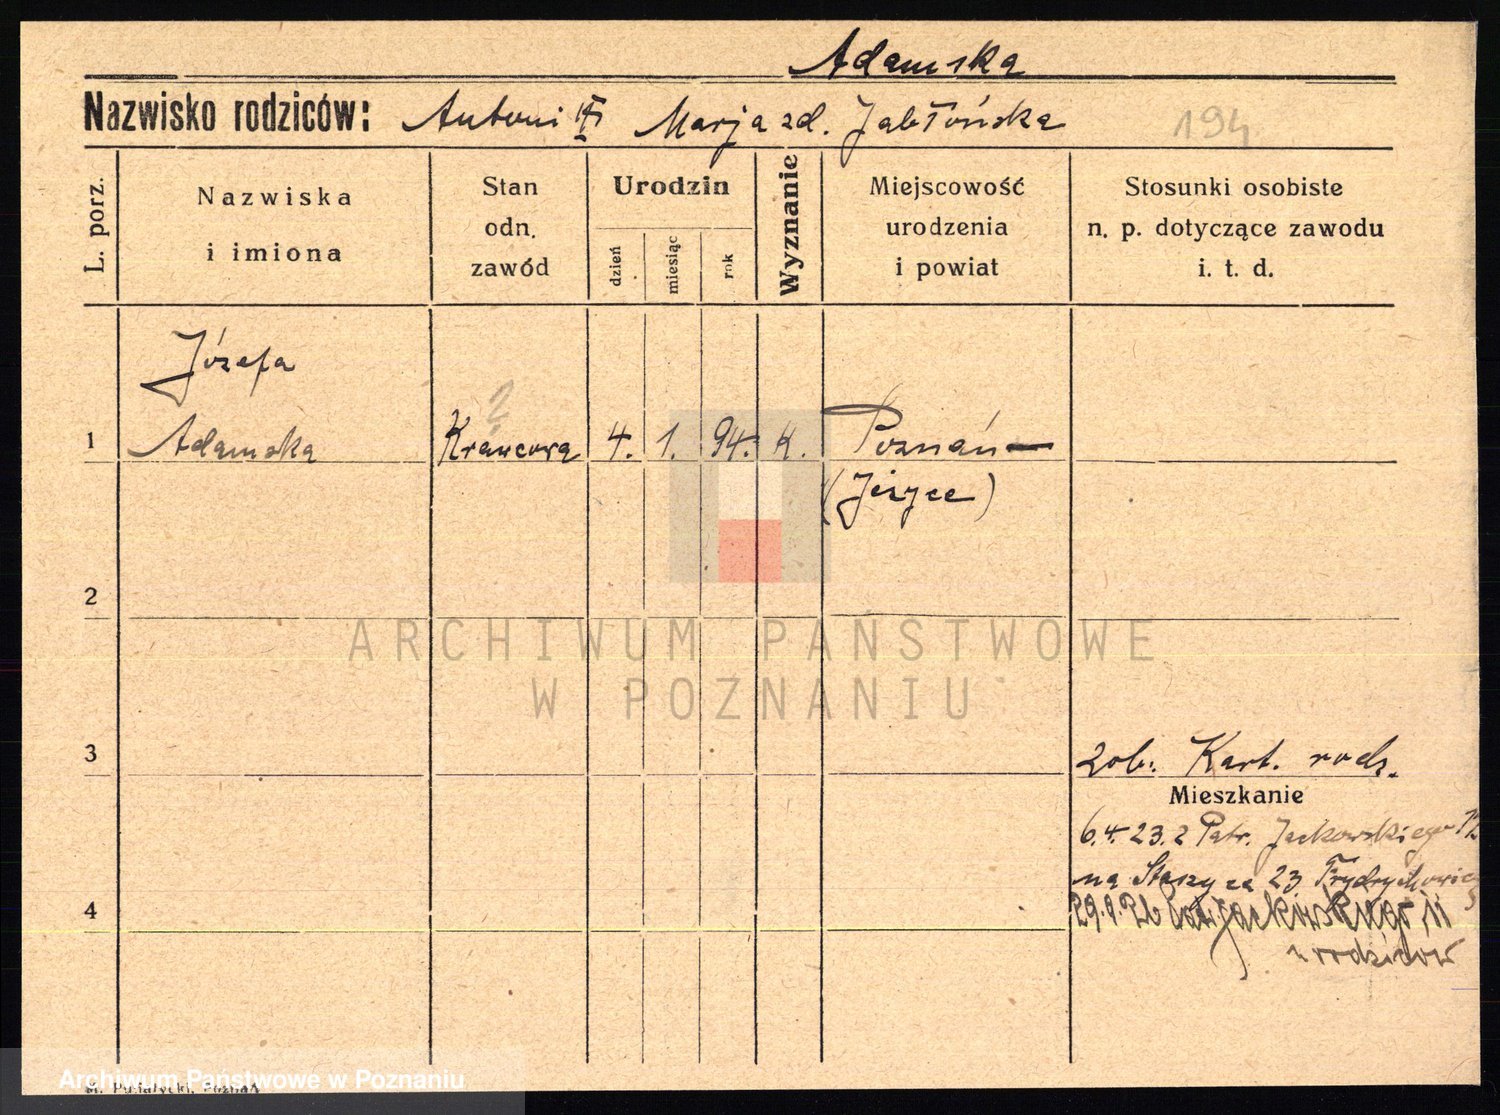 Adamska
Nazwisko rodziców: Antoni Marja zd. Jabłońska 194
L. porz.
Nazwiska
i imiona
Stan
odn.
zawód
Urodzin
dzień
miesiąc
rok
Wyznanie
Miejscowość
urodzenia
i powiat
Stosunki osobiste
n. p. dotyczące zawodu
i. t. d.
Józefa
?
1 Adamska Krawcowa 4. 1. 94. K. Poznań
(Jeżyce)
2
ARCHIWUM PAŃSTWOWE
W POZNANIU
3 Zob. Kart. rodz.
Mieszkanie
6.4.23. z Patr. Jackowskiego
na Staszyca 23
4 Jackowskiego 11
u rodziców
Archiwum Państwowe w Poznaniu
M. Putiatycki, Poznań